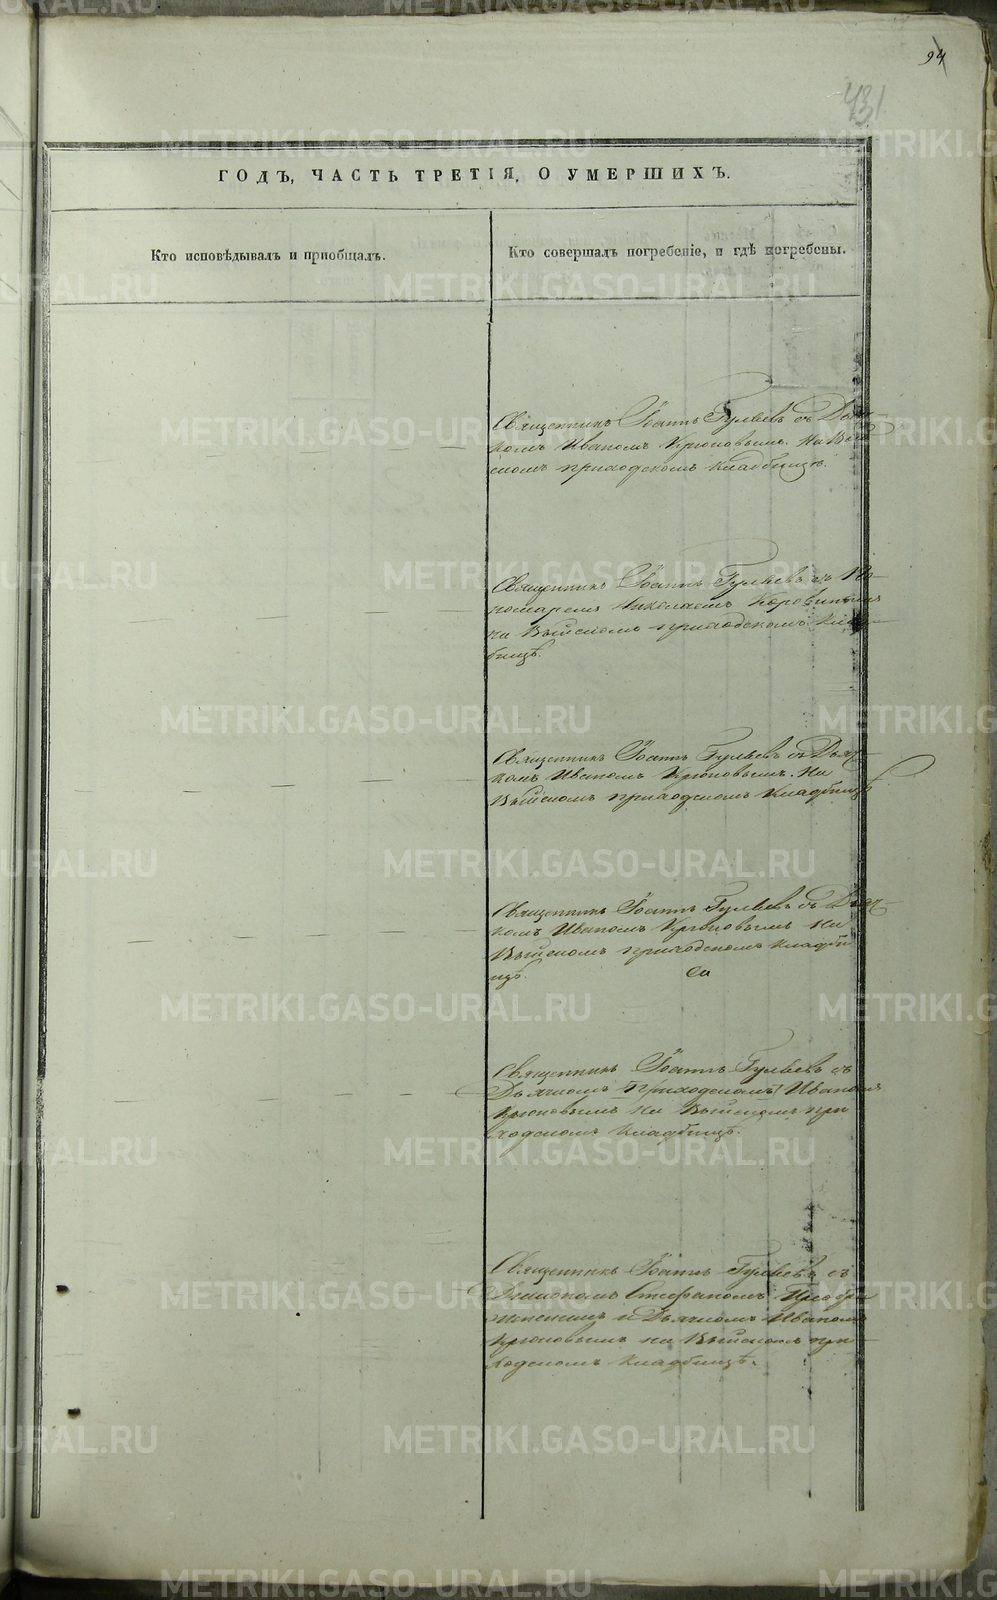 94
431
ГОДЪ, ЧАСТЬ ТРЕТІЯ, О УМЕРШИХЪ.
Кто исповѣдывалъ и пріобщалъ.
Кто совершалъ погребеніе, и гдѣ погребены.
Священникъ Іоаннъ Гуляевъ съ Дьяч-
комъ Иваномъ Крюковымъ. На Вый
скомъ приходскомъ кладбищѣ.
Священникъ Іоаннъ Гуляевъ съ По-
номаремъ Николаемъ Коровинымъ
на Выйскомъ приходскомъ клад-
бищѣ.
Священникъ Іоаннъ Гуляевъ съ Дьяч-
комъ Иваномъ Крюковымъ. На
Выйскомъ приходскомъ кладбищѣ
Священникъ Іоаннъ Гуляевъ съ Дьяч-
комъ Иваномъ Крюковымъ на
Выйскомъ приходскомъ кладби
щѣ.
Священникъ Іоаннъ Гуляевъ съ
Дьячкомъ Приходскимъ Иваномъ
Крюковымъ на Выйскомъ при
ходскомъ кладбищѣ.
Священникъ Іоаннъ Гуляевъ съ
Діакономъ Стефаномъ
и Дьячкомъ Иваномъ
Крюковымъ на Выйскомъ при-
ходскомъ кладбищѣ.
METRIKI.GASO-URAL.RU